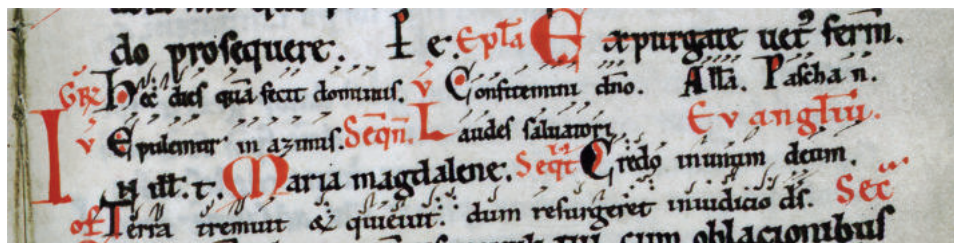 do prosequere. P e. Epl̃a Expurgate uet᷒ ferm̄.
GR̃ Hec dies quā fecit dominus. v̇ Confitemini dño. All̃a. Pascha n.
v̇ Epulemur in azimis. Seqñ. Laudes saluatori Evangl̃iu̅.
In ill̃. t. Maria magdalene. Seqt̃ Credo in unum deum.
of Terra tremuit & quieuit. dum resurgeret in iudicio ds̄. Sec̃
cum oblacionibus